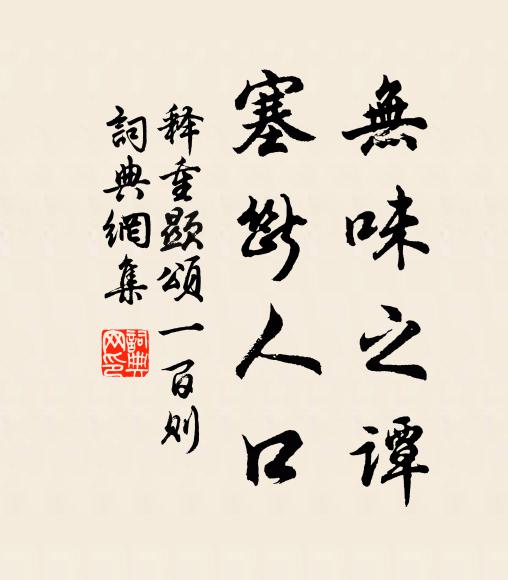 無味之譚
塞斷人口
释重顯頌一百则
詞典網集
詞典網印